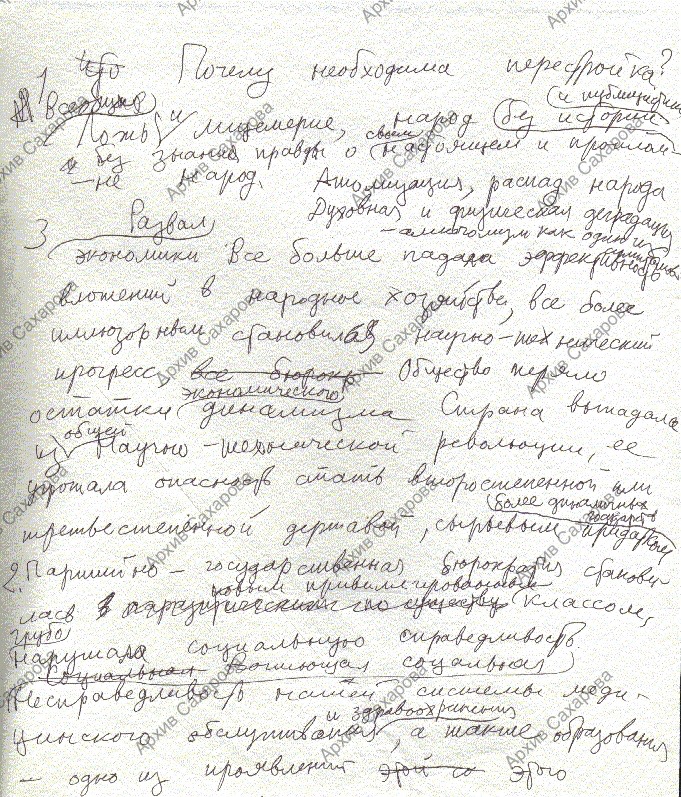 1 Почему необходима перестройка?
и публицистики
Всеобщие
Ложь и лицемерие, народ без истории
и без знания правды о своем настоящем и прошлом
— не народ. Атомизация, распад народа
Духовная и физическая деградация
— алкоголизм как один из
3 Развал
экономики Все больше падала эффективность
вложений в народное хозяйство, все более
иллюзорным становился научно-технический
прогресс все бюрокр Общество теряло
экономического
остатки динамизма Страна выпадала
общей
из научно-технической революции, ее
угрожала опасность стать второстепенной или
более динамичных
государств
третьестепенной державой, сырьевым придатком
2. Партийно-государственная бюрократия станови-
новым привилегированным
лась по существу классом,
грубо
нарушала социальную справедливость.
Социальная Вопиющая социальная
Несправедливость нашей системы меди-
и здравоохранения
цинского обслуживания, а также образования
— одно из проявлений этой со этого
Архив Сахарова